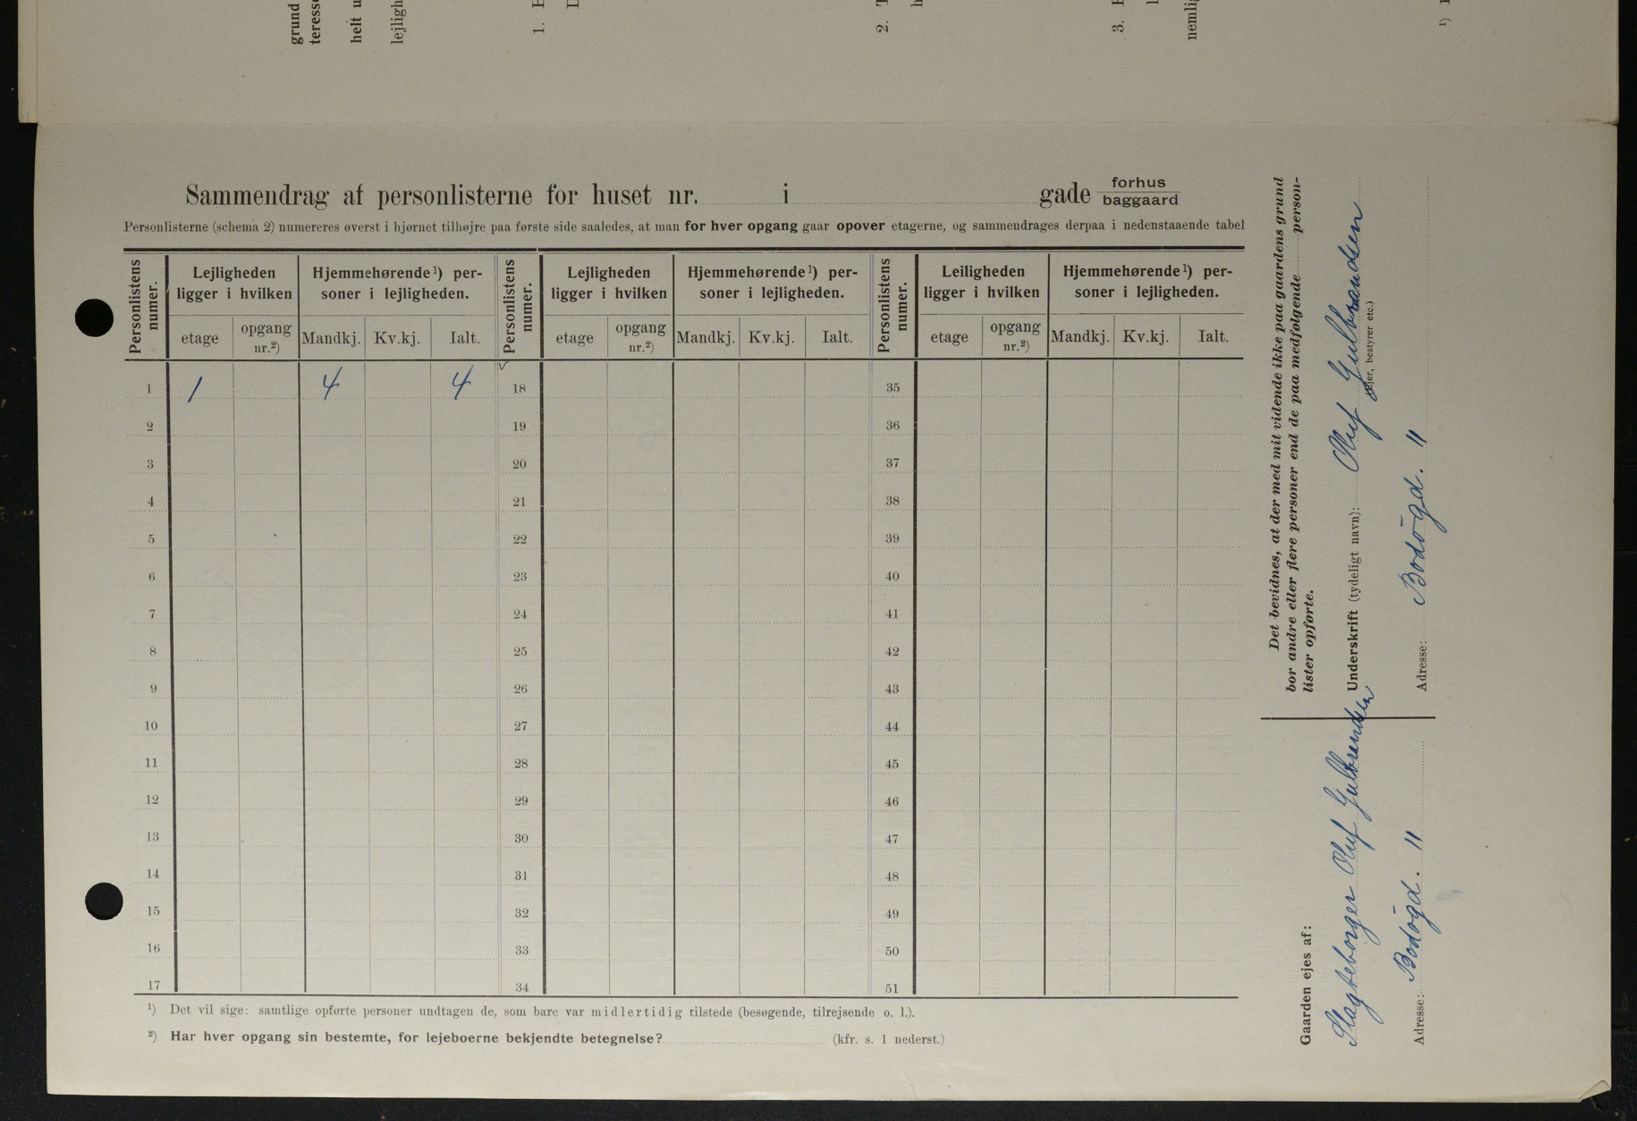 grund
teresse
helt u
lejligh
1. E
D
2. T
h
3. E
l
nemli
¹) I
Sammendrag af personlisterne for huset nr. i gade forhus
baggaard
Personlisterne (schema 2) numereres øverst i hjørnet tilhøjre paa første side saaledes, at man for hver opgang gaar opover etagerne, og sammendrages derpaa i nedenstaaende tabel
Personlistens numer. Lejligheden ligger i hvilken Hjemmehørende¹) personer i lejligheden. Personlistens numer. Lejligheden ligger i hvilken Hjemmehørende¹) personer i lejligheden. Personlistens numer. Leiligheden ligger i hvilken Hjemmehørende¹) personer i lejligheden.
etage opgang nr.²) Mandkj. Kv.kj. Ialt. etage opgang nr.²) Mandkj. Kv.kj. Ialt. etage opgang nr.²) Mandkj. Kv.kj. Ialt.
1 1 4 4 18 35
2 19 36
3 20 37
4 21 38
5 22 39
6 23 40
7 24 41
8 25 42
9 26 43
10 27 44
11 28 45
12 29 46
13 30 47
14 31 48
15 32 49
16 33 50
17 34 51
¹) Det vil sige: samtlige opførte personer undtagen de, som bare var midlertidig tilstede (besøgende, tilrejsende o. l.).
²) Har hver opgang sin bestemte, for lejeboerne bekjendte betegnelse? (kfr. s. 1 nederst.)
Det bevidnes, at der med mit vidende ikke paa gaardens grund
bor andre eller flere personer end de paa medfølgende person-
lister opførte.
Underskrift (tydeligt navn): Oluf Gulbrandsen
(ejer, bestyrer etc.)
Adresse: Bodøgd. 11
Gaarden ejes af:
Slagteborger Oluf Gulbrandsen
Adresse: Bodøgd. 11